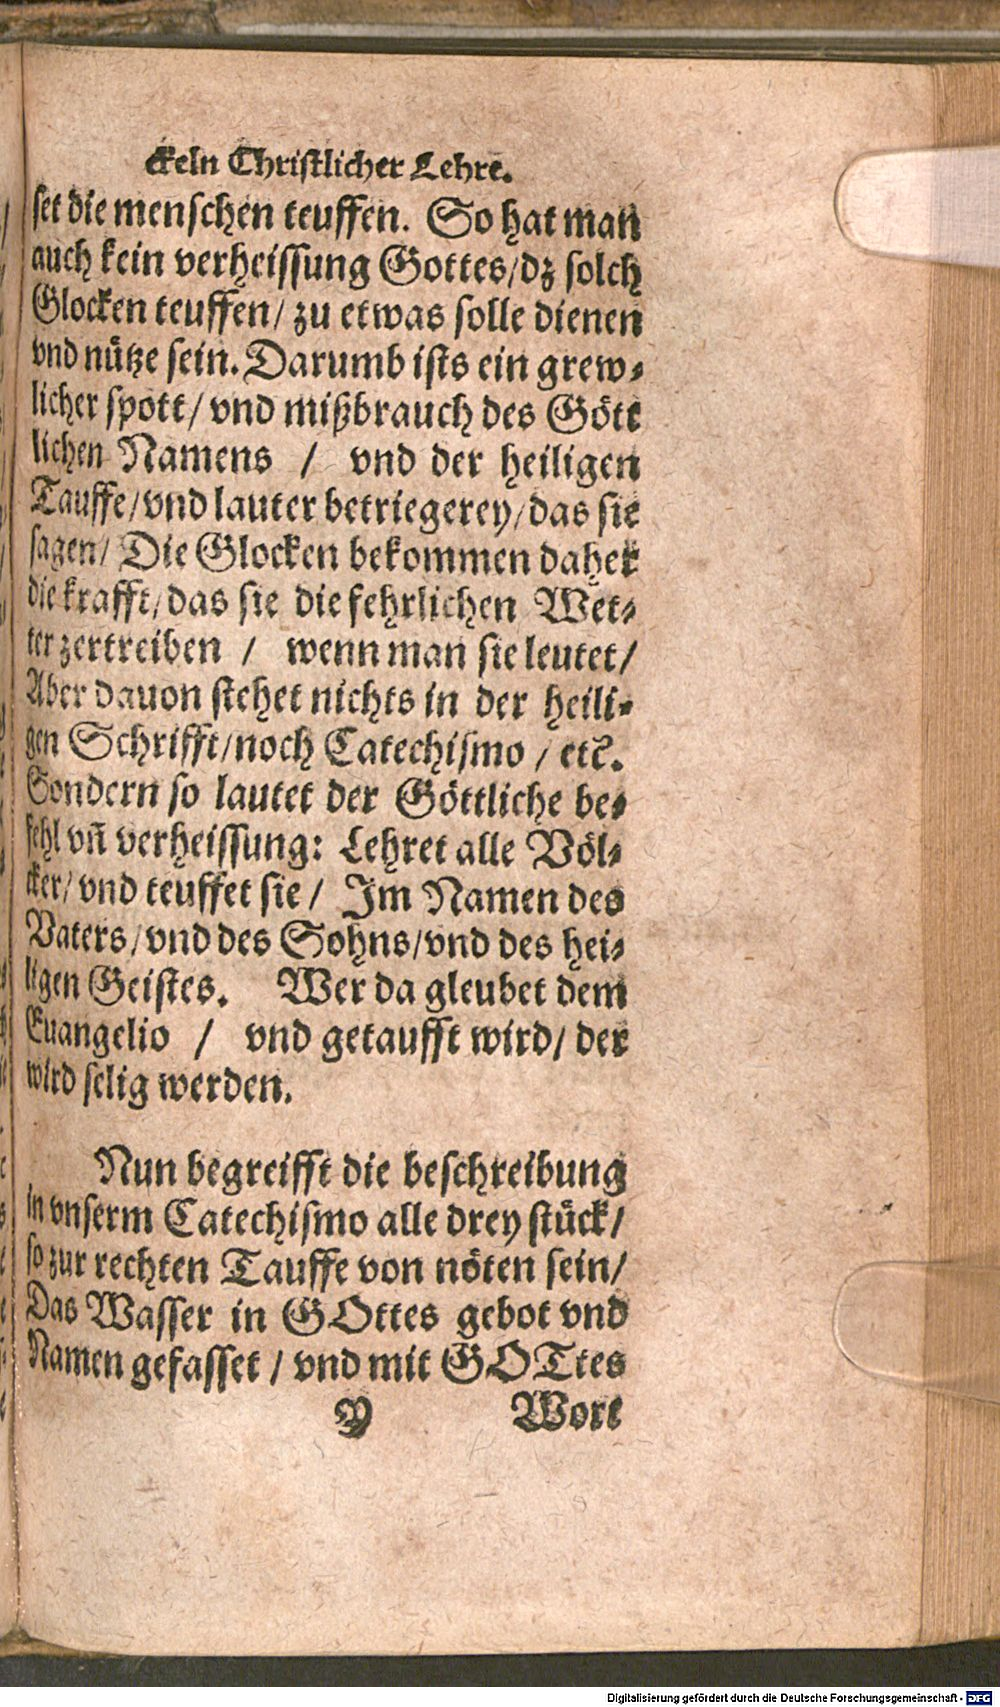 ckeln Christlicher Lehre.
set die menschen teuffen. So hat man
auch kein verheissung Gottes/dz solch
Glocken teuffen/ zu etwas solle dienen
vnd nütze sein. Darumb ists ein grew⸗
licher spott/ vnd mißbrauch des Gött
lichen Namens / vnd der heiligen
Tauffe/vnd lauter betriegerey/das sie
sagen/ Die Glocken bekommen daher
die krafft/das sie die fehrlichen Wet⸗
ter zertreiben / wenn man sie leutet/
Aber dauon stehet nichts in der heili⸗
gen Schrifft/noch Catechismo / etc̃.
Sondern so lautet der Göttliche be⸗
fehl vñ verheissung: Lehret alle Völ⸗
cker/ vnd teuffet sie / Im Namen des
Vaters/vnd des Sohns/vnd des hei⸗
ligen Geistes. Wer da gleubet dem
Euangelio / vnd getaufft wird/ der
wird selig werden.
Nun begreifft die beschreibung
in vnserm Catechismo alle drey stück/
so zur rechten Tauffe von nöten sein/
Das Wasser in GOttes gebot vnd
Namen gefasset / vnd mit GOTtes
Y Wort
Digitalisierung gefördert durch die Deutsche Forschungsgemeinschaft - DFG